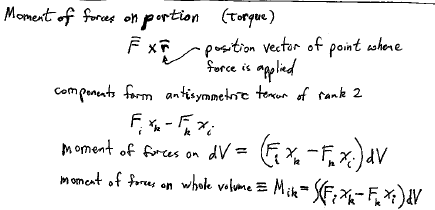 Moment of forces on portion (Torque)
F̄ × r̄ position vector of point where
force is applied
components form antisymmetric tensor of rank 2
Fᵢ xₖ - Fₖ xᵢ
moment of forces on dV = (Fᵢ xₖ - Fₖ xᵢ) dV
moment of forces on whole volume ≡ Mᵢₖ = ∫(Fᵢ xₖ - Fₖ xᵢ) dV